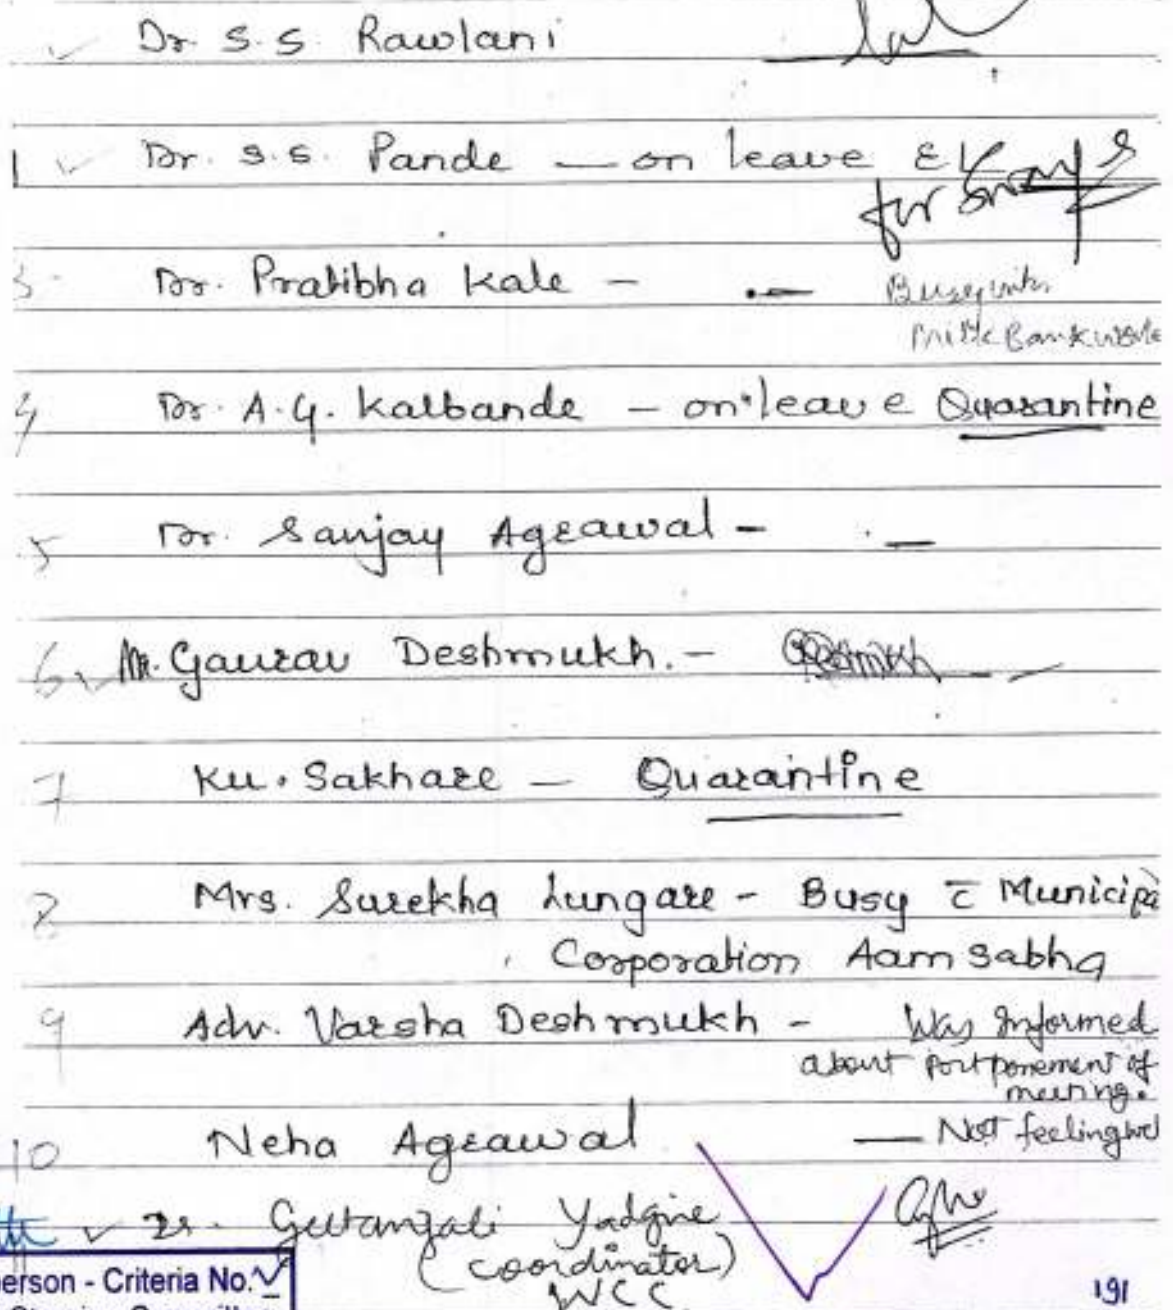 Dr. S.S. Rawlani
1 Dr. S.S. Pande — on leave EL
for
3 Dr. Pratibha Kale - -
Busy with
Milk Bank
4 Dr. A.G. Kalbande - on leave Quarantine
5 Dr. Sanjay Agrawal - -
6 Mr. Gaurav Deshmukh. - GDeshmukh
7 Ku. Sakhare - Quarantine
8 Mrs. Surekha Lungare - Busy c̄ Municipa
Corporation Aam sabha
9 Adv. Varsha Deshmukh - Was Informed
about postponement of
meeting.
10 Neha Agrawal — Not feeling wel
Dr. Geetanjali Yadgire
(coordinator)
WCC
erson - Criteria No. V
191